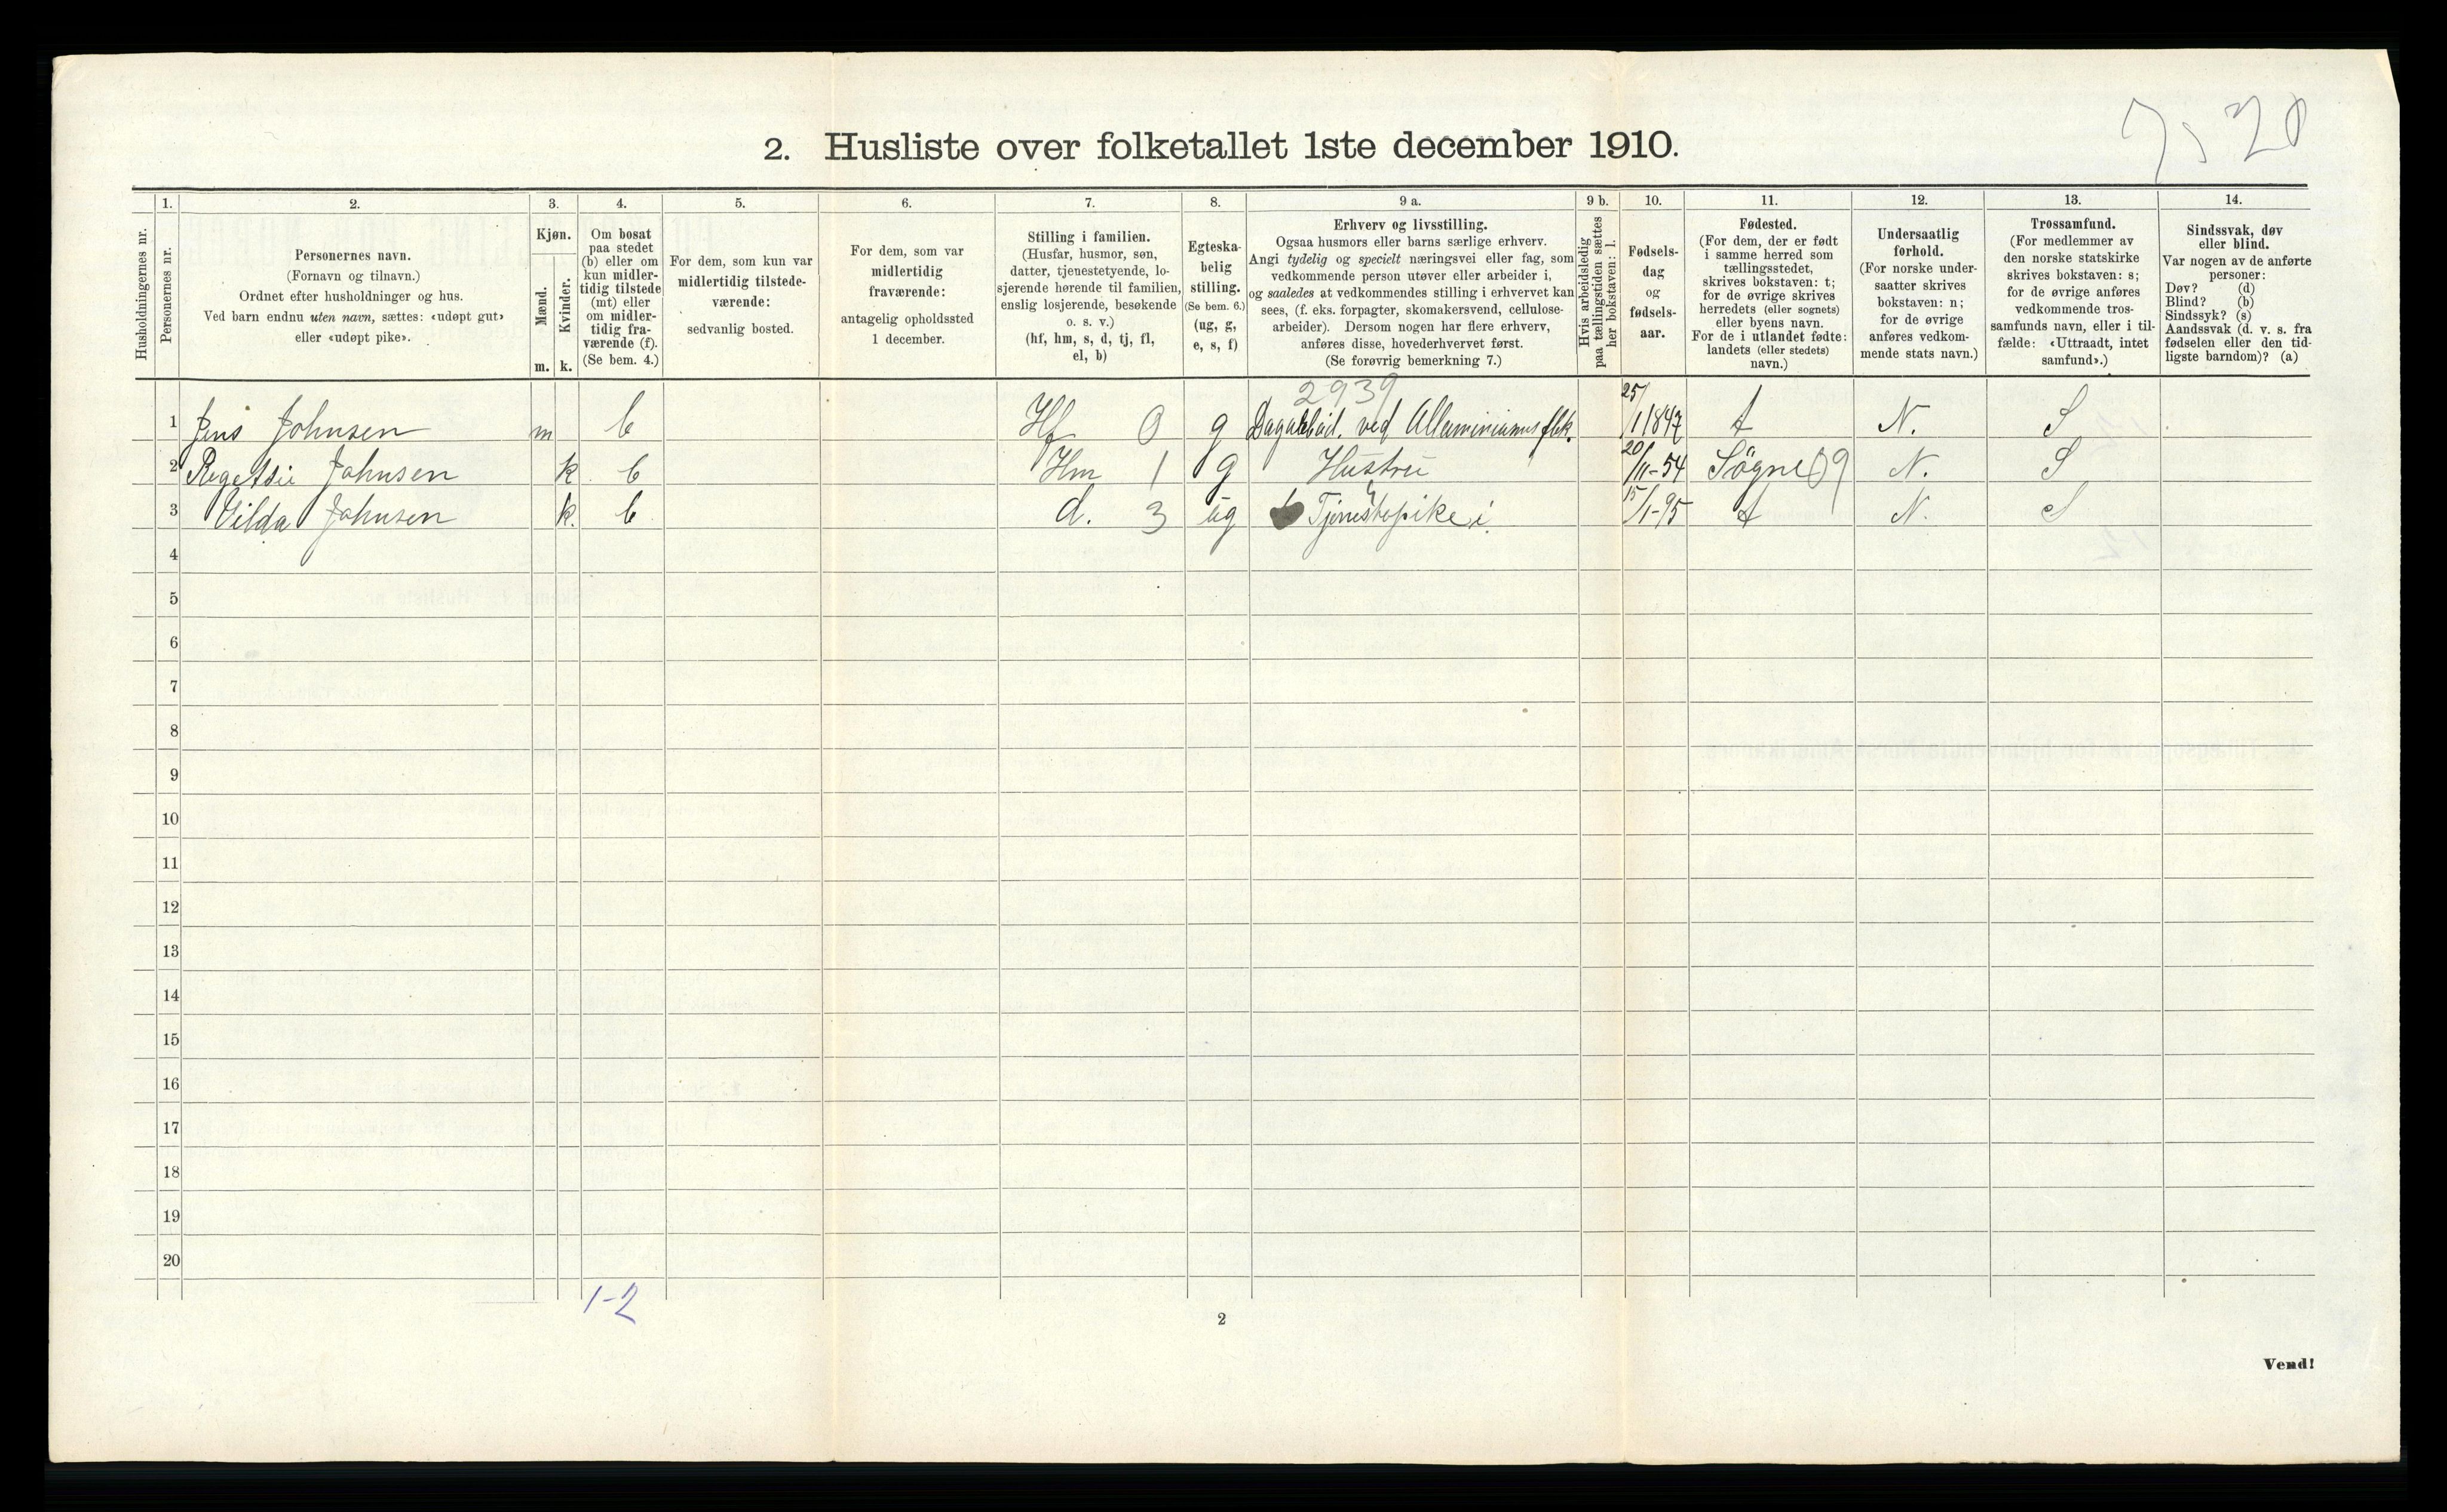 7520
2. Husliste over folketallet 1ste december 1910.
Husholdningernes nr.
1.
Personernes nr.
2.
Personernes navn.
(Fornavn og tilnavn.)
Ordnet efter husholdninger og hus.
Ved barn endnu uten navn, sættes: «udøpt gut»
eller «udøpt pike».
3.
Kjøn.
Mænd.
Kvinder.
m. k.
4.
Om bosat
paa stedet
(b) eller om
kun midler-
tidig tilstede
(mt) eller
om midler-
tidig fra-
værende (f).
(Se bem. 4.)
5.
For dem, som kun var
midlertidig tilstede-
værende:
sedvanlig bosted.
6.
For dem, som var
midlertidig
fraværende:
antagelig opholdssted
1 december.
7.
Stilling i familien.
(Husfar, husmor, søn,
datter, tjenestetyende, lo-
sjerende hørende til familien,
enslig losjerende, besøkende
o. s. v.)
(hf, hm, s, d, tj, fl,
el, b)
8.
Egteska-
belig
stilling.
(Se bem. 6.)
(ug, g,
e, s, f)
9 a.
Erhverv og livsstilling.
Ogsaa husmors eller barns særlige erhverv.
Angi tydelig og specielt næringsvei eller fag, som
vedkommende person utøver eller arbeider i,
og saaledes at vedkommendes stilling i erhvervet kan
sees, (f. eks. forpagter, skomakersvend, cellulose-
arbeider). Dersom nogen har flere erhverv,
anføres disse, hovederhvervet først.
(Se forøvrig bemerkning 7.)
9 b.
Hvis arbeidsledig
paa tællingstiden sættes
her bokstaven: l.
10.
Fødsels-
dag
og
fødsels-
aar.
11.
Fødested.
(For dem, der er født
i samme herred som
tællingsstedet,
skrives bokstaven: t;
for de øvrige skrives
herredets (eller sognets)
eller byens navn.
For de i utlandet fødte:
landets (eller stedets)
navn.)
12.
Undersaatlig
forhold.
(For norske under-
saatter skrives
bokstaven: n;
for de øvrige
anføres vedkom-
mende stats navn.)
13.
Trossamfund.
(For medlemmer av
den norske statskirke
skrives bokstaven: s;
for de øvrige anføres
vedkommende tros-
samfunds navn, eller i til-
fælde: «Uttraadt, intet
samfund».)
14.
Sindssvak, døv
eller blind.
Var nogen av de anførte
personer:
Døv? (d)
Blind? (b)
Sindssyk? (s)
Aandssvak (d. v. s. fra
fødselen eller den tid-
ligste barndom)? (a)
2939
1 Jens Johnsen m b Hf 0 g ved 25/1 1847 t N. S
2 Johnsen k b Hm 1 g Hustru 20/11-54 Søgne 09 N. S
3 Johnsen k. b d. 3 ug Tjenestepike i 15/1-95 t N. S
4
5
6
7
8
9
10
11
12
13
14
15
16
17
18
19
20
1-2
2
Vend!